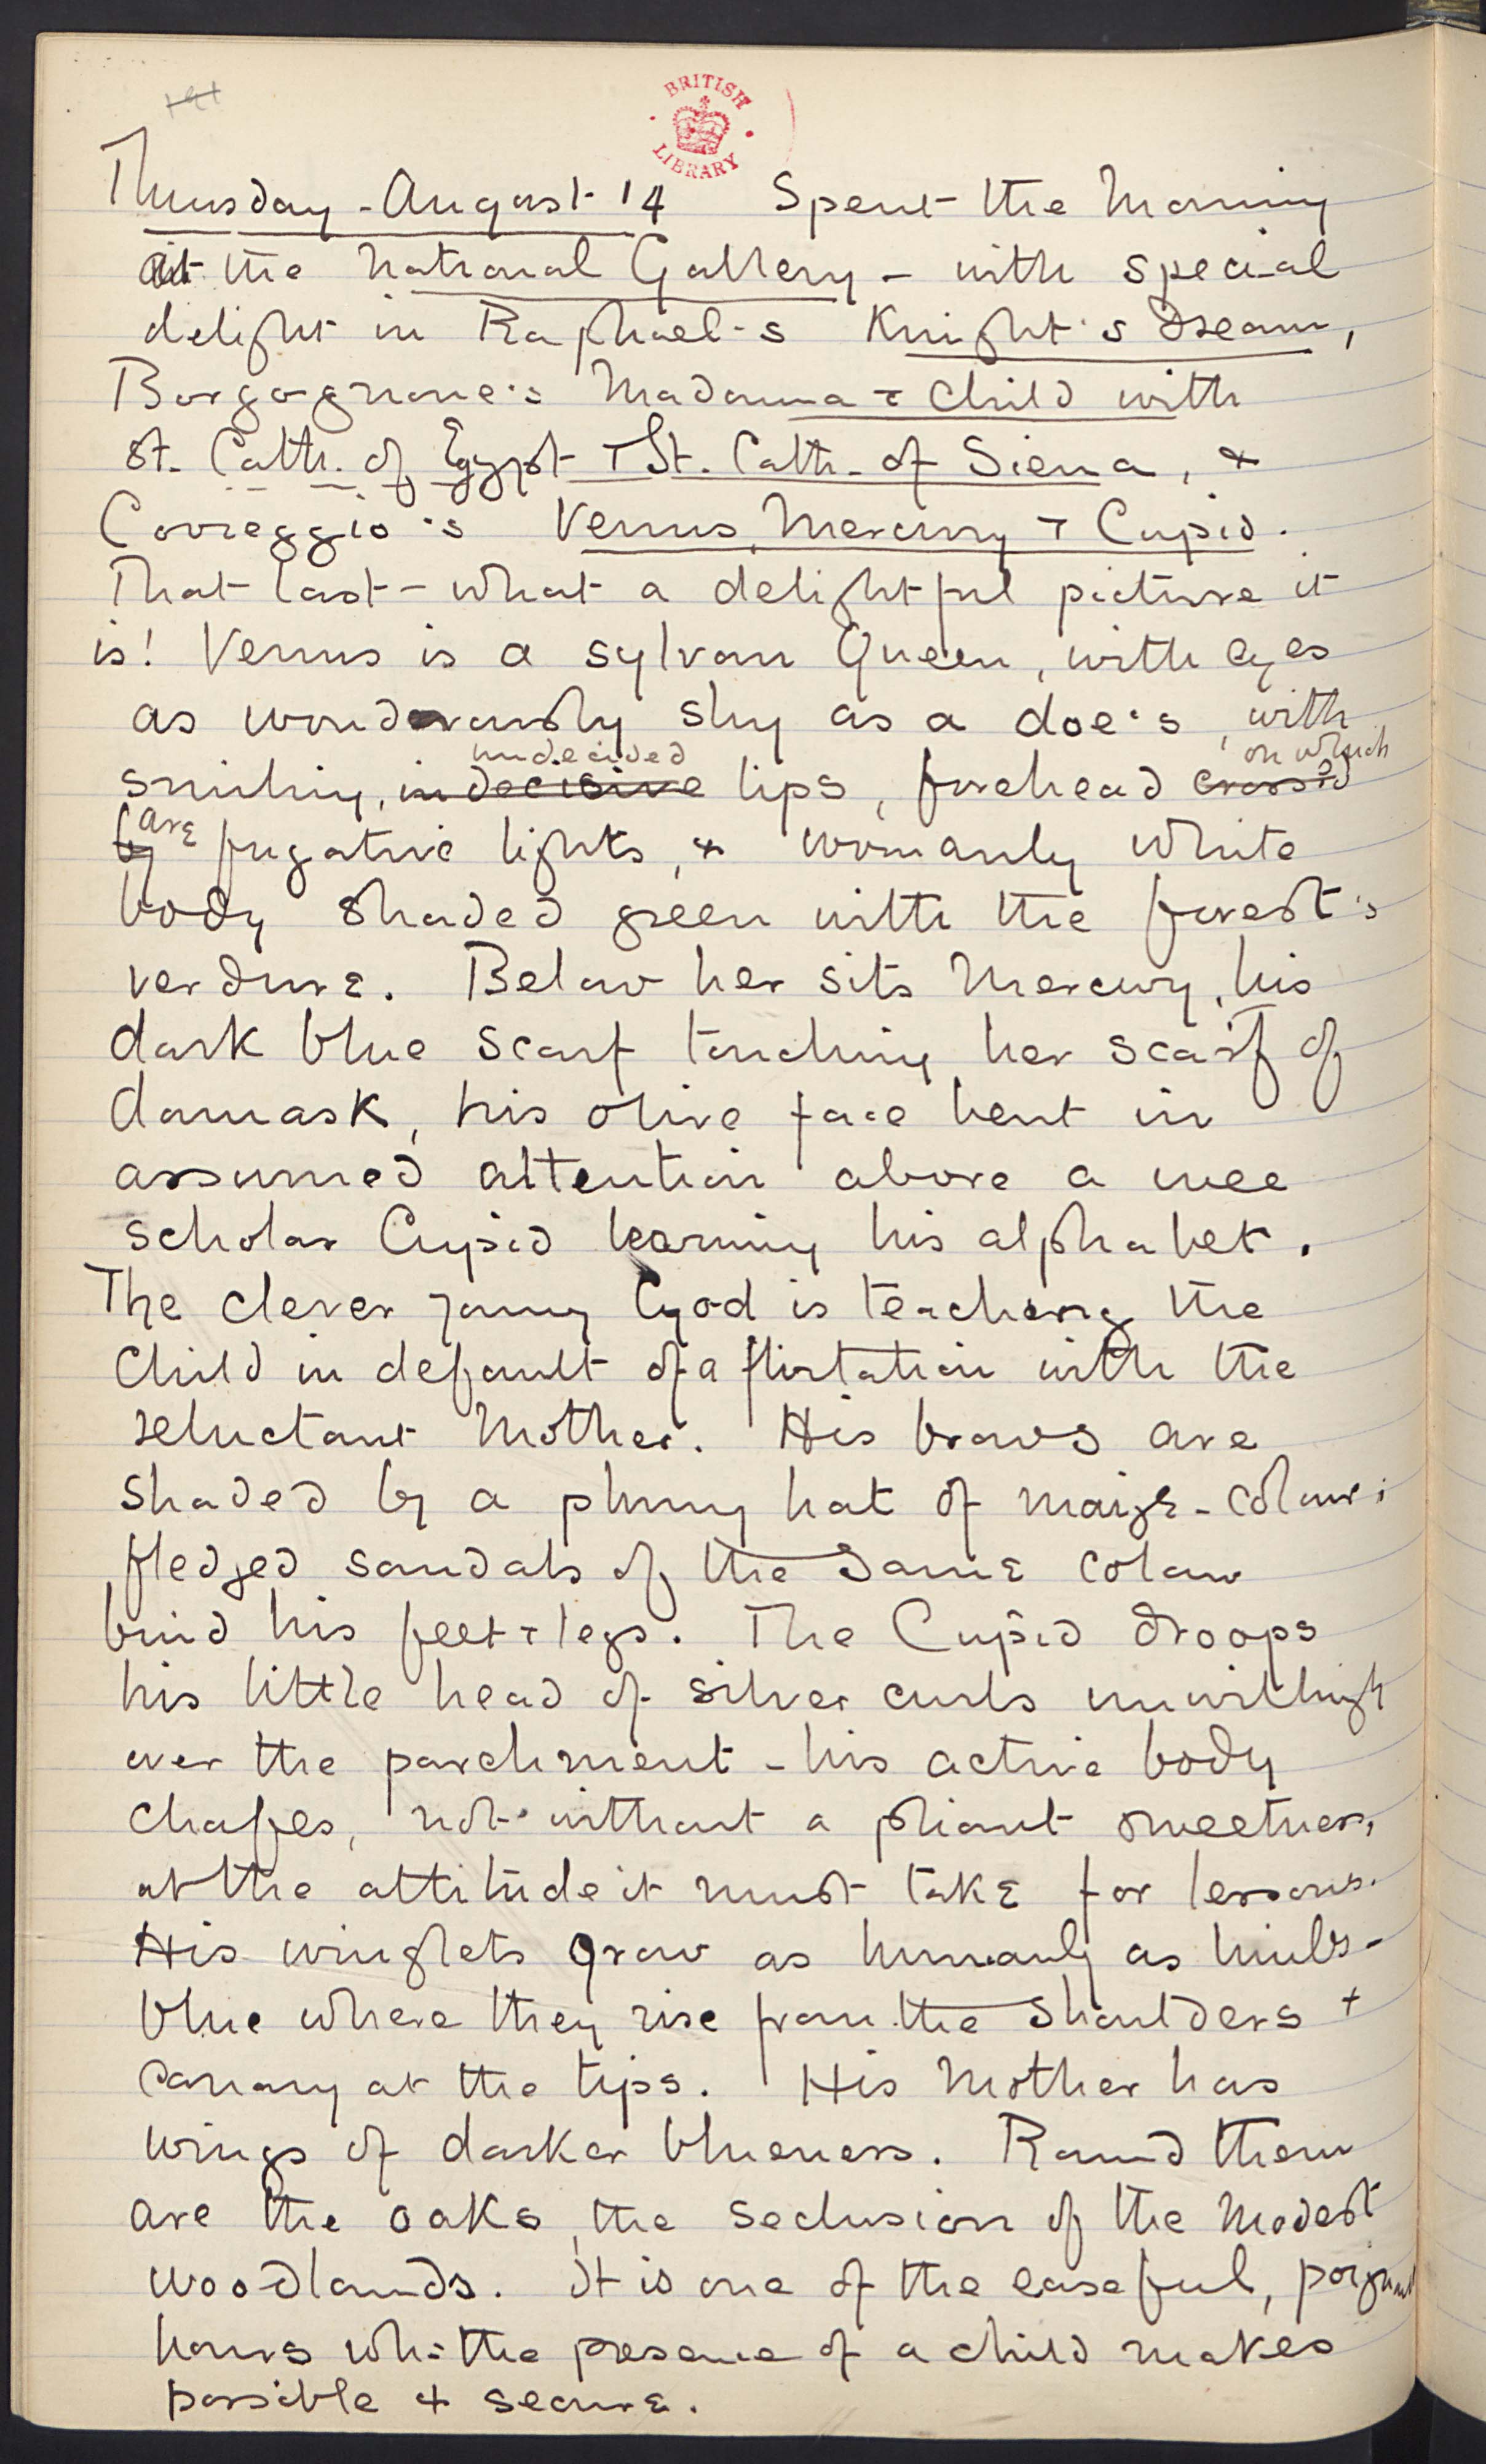 BRITISH
LIBRARY
Thursday - August 14 Spent the Morning
at the National Gallery - with special
delight in Raphael's Knight's Dream,
Borgognone's Madonna + Child with
St. Cath. of Egypt + St. Cath. of Siena, &
Correggio's Venus, Mercury + Cupid.
That last - what a delightful picture it
is! Venus is a sylvan Queen, with eyes
as wonderously shy as a doe's, with
undecided on which
smiling, indecisive lips, forehead crossed
are
by fugative lights, & womanly white
body shaded green with the forest's
verdure. Below her sits Mercury, his
dark blue scarf touching her scarf of
damask, his olive face bent in
assumed attention above a wee
scholar Cupid learning his alphabet.
The clever young God is teaching the
Child in default of a flirtation with the
reluctant Mother. His brows are
shaded by a plumy hat of maize-colour;
fledged sandals of the same colour
bind his feet + legs. The Cupid droops
his little head of silver curls unwillingly
over the parchment - his active body
chafes, not without a pliant sweetness,
at the attitude it must take for lessons.
His winglets grow as humanly as limbs -
blue where they rise from the shoulders +
canary at the tips. His Mother has
wings of darker blueness. Round them
are the oaks, the seclusion of the modest
woodlands. It is one of the easeful, poignant
hours wh: the presence of a child makes
possible & secure.